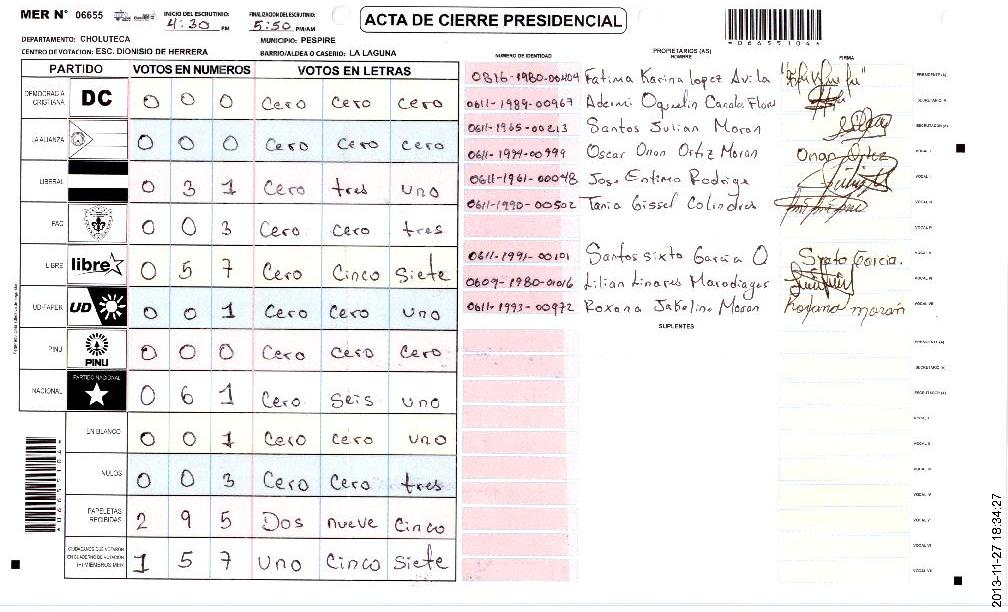 MER N° 06655
INICIO DEL ESCRUTINIO: 4:30 PM
FINALIZACION DEL ESCRUTINIO: 5:50 PM/AM
ACTA DE CIERRE PRESIDENCIAL
DEPARTAMENTO: CHOLUTECA
MUNICIPIO: PESPIRE
CENTRO DE VOTACION: ESC. DIONISIO DE HERRERA
BARRIO/ALDEA O CASERIO: LA LAGUNA
PARTIDO VOTOS EN NUMEROS VOTOS EN LETRAS
DEMOCRACIA CRISTIANA DC 0 0 0 Cero Cero Cero
LA ALIANZA 0 0 0 Cero Cero Cero
LIBERAL 0 3 1 Cero tres uno
PAC 0 0 3 Cero Cero tres
LIBRE libre 0 5 7 Cero Cinco Siete
UD-FAPER UD 0 0 1 Cero Cero uno
PINU PINU 0 0 0 Cero Cero Cero
NACIONAL PARTIDO NACIONAL 0 6 1 Cero Seis uno
EN BLANCO 0 0 1 Cero Cero uno
NULOS 0 0 3 Cero Cero tres
PAPELETAS RECIBIDAS 2 9 5 Dos nueve Cinco
CIUDADANOS QUE VOTARON EN CUADERNO DE VOTACION (+) MIEMBROS MER 1 5 7 uno Cinco Siete
*06655104*
PROPIETARIOS (AS)
NUMERO DE IDENTIDAD NOMBRE FIRMA
0816-1980-00404 Fatima Karina Lopez Avila PRESIDENTE (A)
0611-1989-00967 SECRETARIO (A)
0611-1965-00213 Santos Julian Moran ESCRUTADOR (A)
0611-1994-00999 Oscar Onan Ortiz Moran Onan Ortiz VOCAL I
0611-1961-00048 VOCAL II
0611-1990-00502 Tania Gissel Colindres VOCAL III
VOCAL IV
0611-1991-00101 Santos Sixto Garcia O Sixto Garcia. VOCAL V
0609-1980-01016 Lilian Linares Maradiaga VOCAL VI
0611-1993-00972 Roxana Jakeline Moran Roxana morán VOCAL VII
SUPLENTES
PRESIDENTE (A)
SECRETARIO (A)
ESCRUTADOR (A)
VOCAL I
VOCAL II
VOCAL III
VOCAL IV
VOCAL V
VOCAL VI
VOCAL VII
2013-11-27 18:34:27